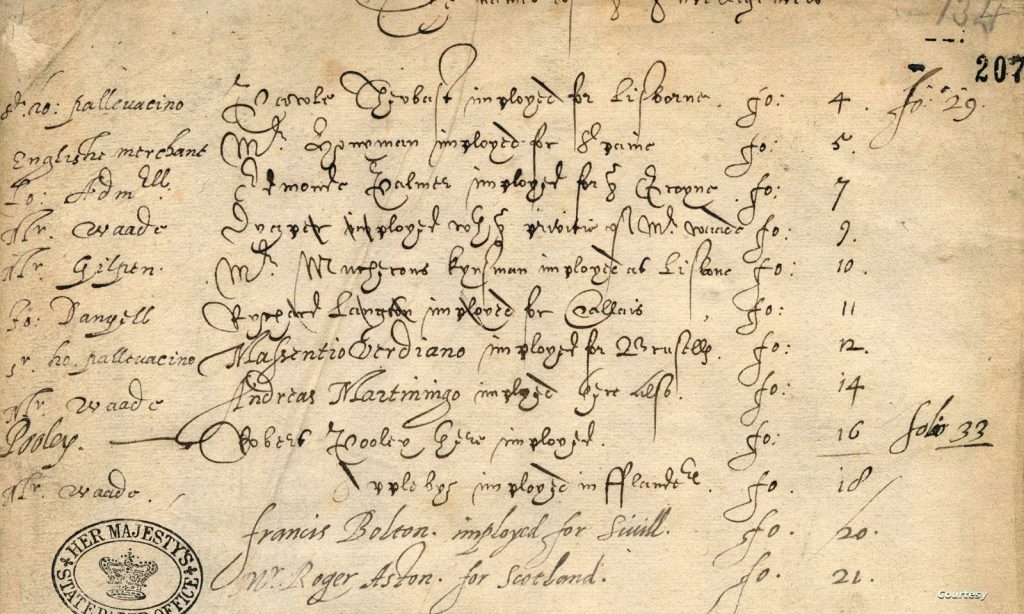 134
207
Sr. ho: pallevacino Pawle Theobast imployed for Lisborne. fo: 4. fo: 29.
Englishe merchant Mr. Howman imployed for Spaine fo: 5.
Lo: Admll. Edmonde Palmer imployed for ye Groyne. fo: 7
Mr. Waade Draper imployed wth ye privitie of Mr. Waade fo: 9.
Mr. Gilpen. Mr. Mucherons kynsman imployed at Lisbone fo: 10.
Jo: Danyell Rychard Langton imployed for Callais, fo: 11
Sr. ho. pallevacino Massentio Verdiano imployed for Brusells. fo: 12.
Mr. Waade Andreas Martiningo imployed here also. fo: 14
Pooley. Robert Pooley here imployed. fo: 16 folio 33
Mr. Waade. Applebye imployed in fflanders. fo. 18
francis Bolton. imployed for Sivill. fo. 20.
Mr. Roger Aston. for Scotland. fo. 21.
HER MAJESTY'S STATE PAPER OFFICE
Courtesy